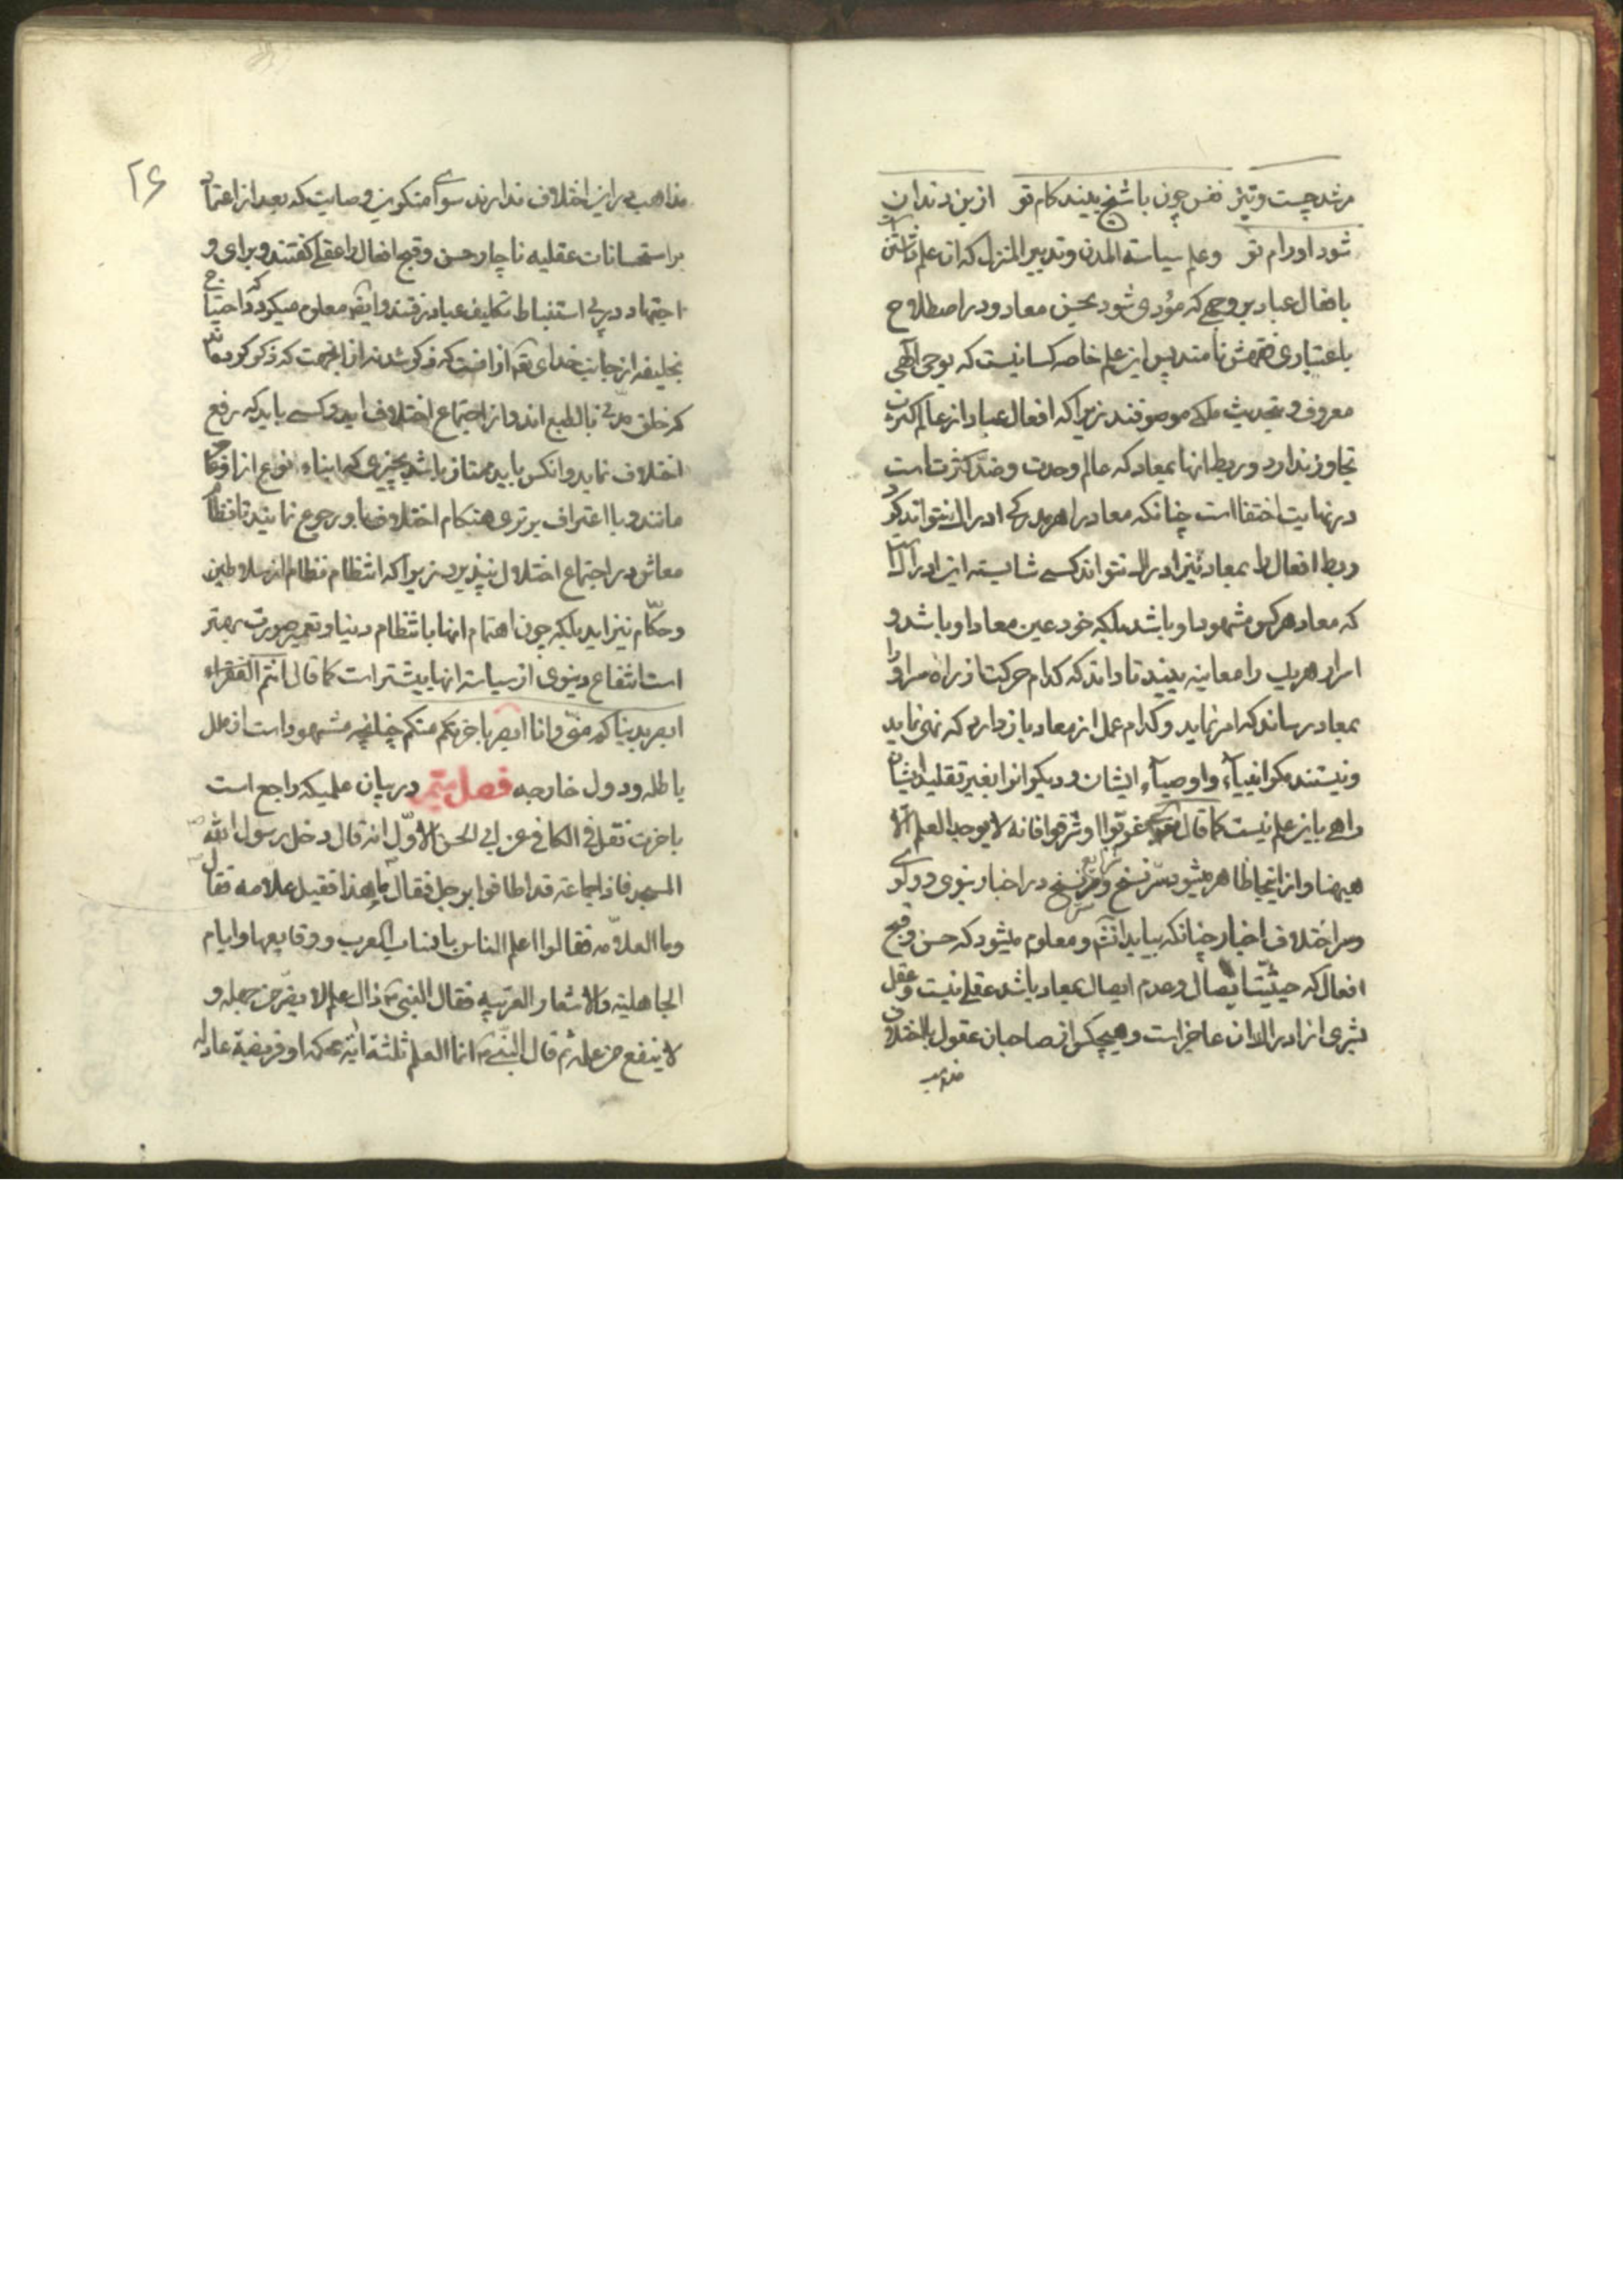 مرشد چست و تیز نفس چون با شیخ بیند کام تو از بن دندان
شود او رام تو و علم سیاسة المدن و تدبیر المنزل که آن علم
بافعال عباد بر وجهی که مؤدی شود بحسن معاد و در اصطلاح
باعتباری فقهش نامند پس این علم خاصه کسانیست که بوحی الهی
معروف و بتحدیث ملکی موصوفند زیرا که افعال عباد از عالم کثرت
تجاوز ندارد و ربط آنها بمعاد که عالم وحدت و ضد کثرت است
در نهایت اختفا است چنانکه معاد را هر مدرکی ادراک نتواند کرد
ربط افعال را بمعاد نیز ادراک نتواند کسی شایسته این ادراک است
که معاد هر کس مشهود او باشد بلکه خود عین معاد او باشد و
اسرار هر یک را معاینه بیند تا داند که کدام حرکت از راه مر او را
بمعاد رساند که امر نماید و کدام عمل از معاد باز دارد که نهی نماید
و نیستند مکر انبیآء و اوصیآء ایشان و دیکرانرا بغیر تقلید ایشان
راهی باین علم نیست کما قال غربوا او شرقوا فانه لا یوجد العلم الا
هیهنا و از اینجا ظاهر میشود سر نسخ در اخبار نبوی و ولوی
و سر اختلاف اخبار چنانکه بیاید انشم و معلوم میشود که حسن و قبح
افعال که حیثیت ایصال و عدم ایصال بمعاد باشد عقلی نیست و عقل
بشری از ادراک آن عاجز است و هیچکس از صاحبان عقول باختلاف
مذاهب
۲۶
مذاهب در این اختلاف ندارند سوای منکرین وصایت که بعد از اعتماد
بر استحسانات عقلیه ناچار حسن و قبح افعال را عقلی کفتند و برای و
اجتهاد در پی استنباط تکلیف عباد رفتند و ایضا معلوم میکردد که احتیاج
بخلیفه از جانب خدای تعم از آنست که ذکر شد نه از آنجهت که ذکر کرده‌اند
که خلق مدنی بالطبع اند و از اجتماع اختلاف اید و کسی باید که رفع
اختلاف نماید و انکس باید ممتاز باشد بچیزی که ابناء نوع از او
مانند و با اعتراف برتری هنکام اختلاف باو رجوع نمایند تا نظام
معاش در اجتماع اختلال نپذیرد زیرا که انتظام نظام از سلاطین
و حکام نیز اید بلکه چون اهتمام آنها بانتظام دنیا و تعمیر صورت بهتر
است انتفاع دنیوی از سیاسة آنها بیشتر است کما قال انتم الفقراء
ابصر بدنیاکم منی و انا ابصر باخرتکم منکم چنانچه مشهود است از ملل
باطله و دول خارجه فصل ستم در بیان علمیکه راجع است
باخرت نقل فی الکافی عن ابی الحسن الاول انه قال دخل رسول الله
المسجد فاذا جماعة قد اطافوا برجل فقال ما هذا فقیل علامه فقال
و ما العلامه فقالوا اعلم الناس بانساب العرب و وقایعها و ایام
الجاهلیة و الاشعار العربیه فقال النبی ذاک علم لا یضر من جهله و
لا ینفع من علمه ثم قال النبی انما العلم ثلثة ایة محکمة او فریضة عادله